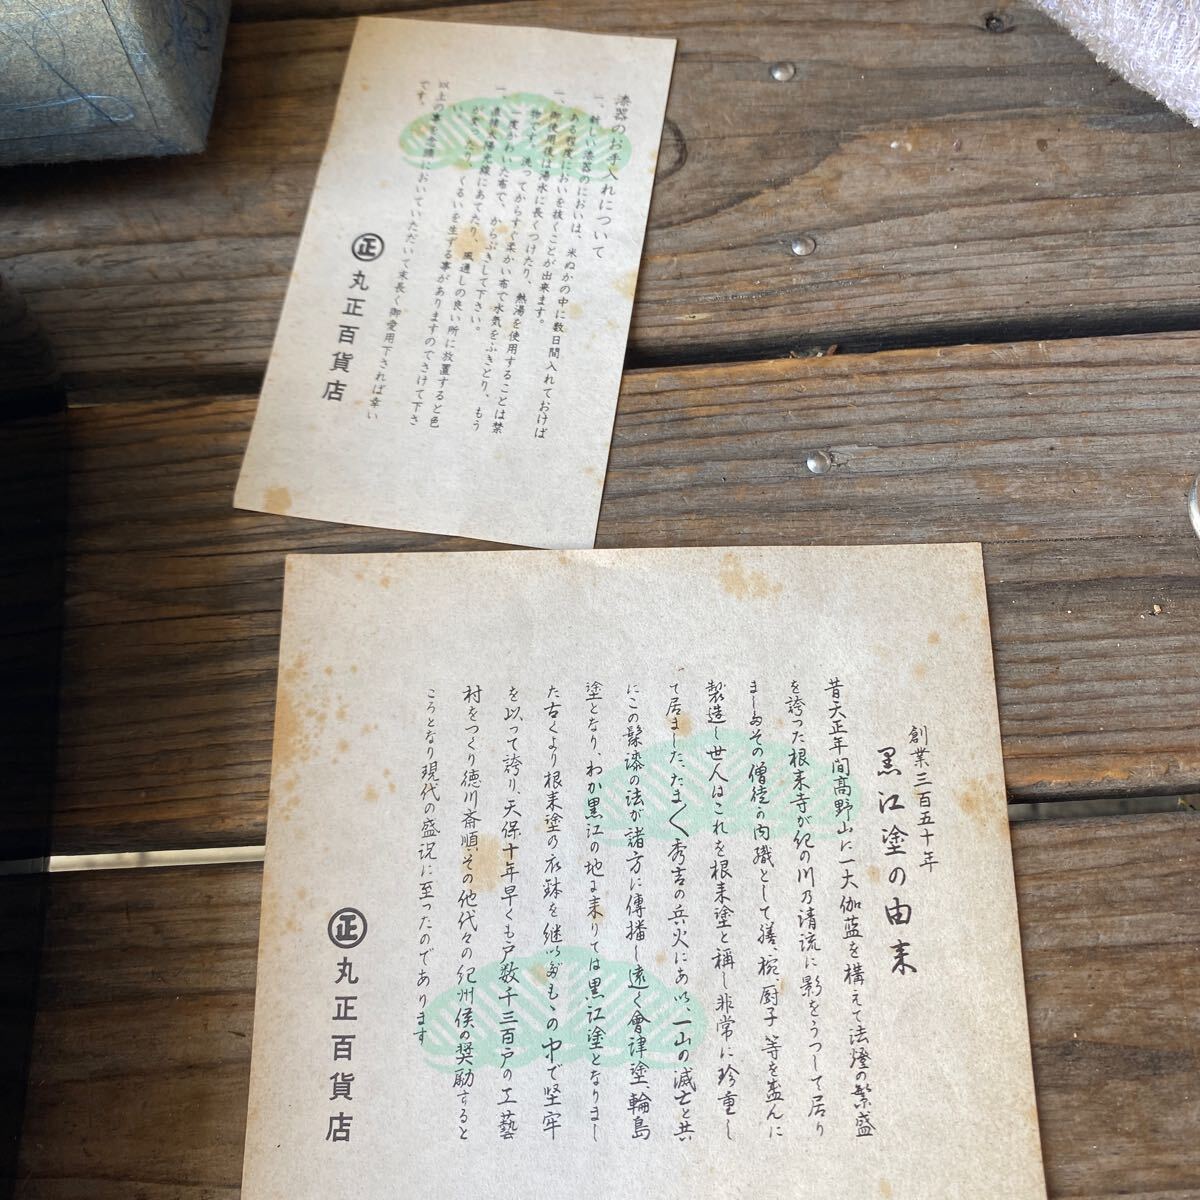 漆器のお手入れについて
一、新しい漆器のにおいは、米ぬかの中に数日間入れておけば
ある程度においを抜くことが出来ます。
一、御使用後は湯水に長くつけたり、熱湯を使用することは禁
物です。洗ってからすぐ柔かい布で水気をふきとり、もう
一度かわいた布で、からぶきして下さい。
一、直接太陽光線にあてたり、風通しの良い所に放置すると色
が変ったり、くるいを生ずる事がありますのでさけて下さ
い。
以上の事を念頭においていただいて末長く御愛用下されば幸い
です。
正 丸正百貨店
創業三百五十年
黒江塗の由来
昔天正年间髙野山に一大伽藍を構えて法燈の繁盛
を誇った根来寺が紀の川乃清流に影をうつして居り
ましたその僧徒の内職として膳、椀、厨子等を盛んに
製造し世人はこれを根来塗と稱し非常に珍重し
て居ました、たま〱秀吉の兵火にあい、一山の滅亡と共
にこの髹漆の法が諸方に傳播し遠く會津塗、輪島
塗となり、わか黒江の地に来りては黒江塗となりまし
た古くより根来塗の衣鉢を継いだもゝの中で堅牢
を以って誇り、天保十年早くも戸数千三百戸の工藝
村をつくり徳川斎順、その他代々の紀州侯の奨励すると
ころとなり現代の盛況に至ったのであります
正 丸正百貨店